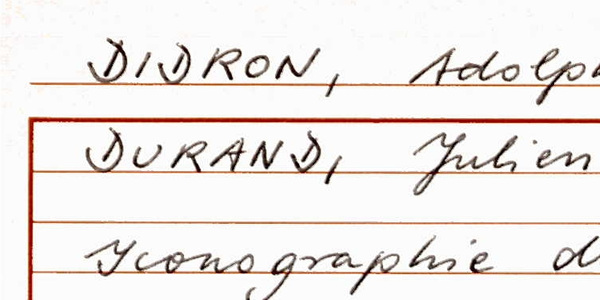 DIDRON, Adolph
DURAND, Julien
Iconographie d